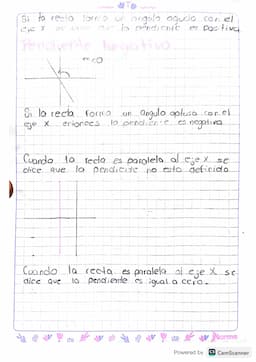 Si la recta forma un angulo agudo con el
eje x la pendiente es positiva
Pendiente Negativa
m<0
Si la recta forma un angulo obtuso con el
eje x entonces la pendiente es negativa
Cuando la recta es paralela al eje x se
dice que la pendiente no esta definida
Cuando la recta es paralela al eje x se
dice que la pendiente es igual a cero.
Norma
Powered by CS CamScanner